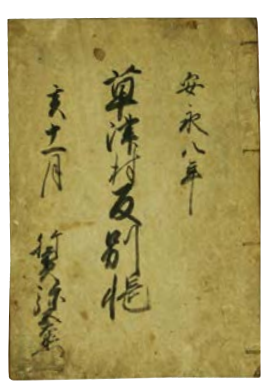 安永八年
草津村反別帳
亥十一月